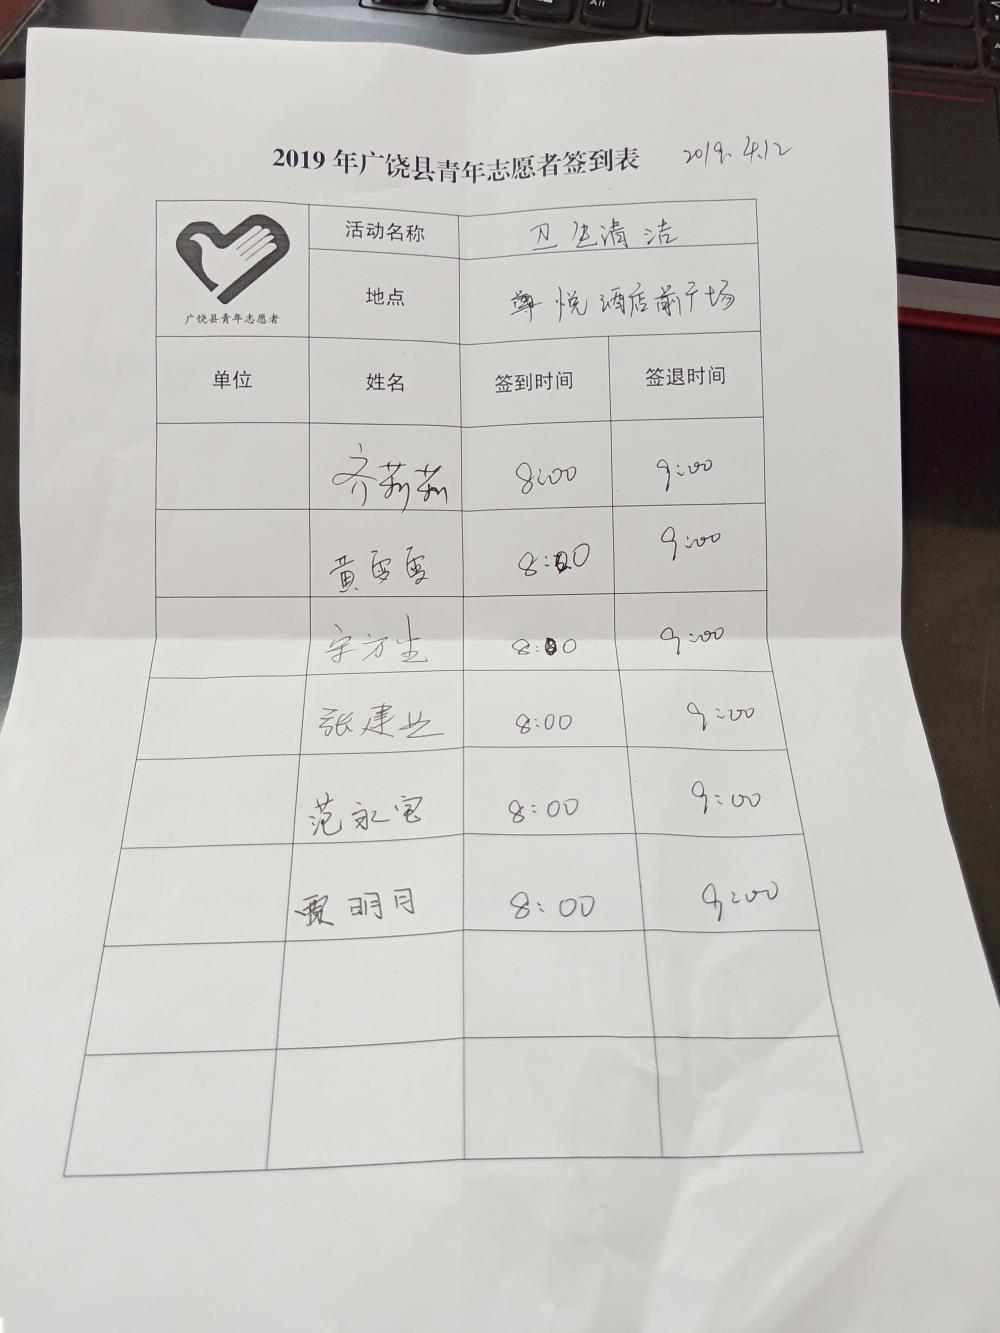 2019年广饶县青年志愿者签到表 2019.4.12
活动名称 卫生清洁
广饶县青年志愿者 地点 尊悦酒店前广场
单位 姓名 签到时间 签退时间
齐莉莉 8:00 9:00
黄雪雪 8:00 9:00
方生 8:00 9:00
张建业 8:00 9:00
范永宝 8:00 9:00
贾明月 8:00 9:00